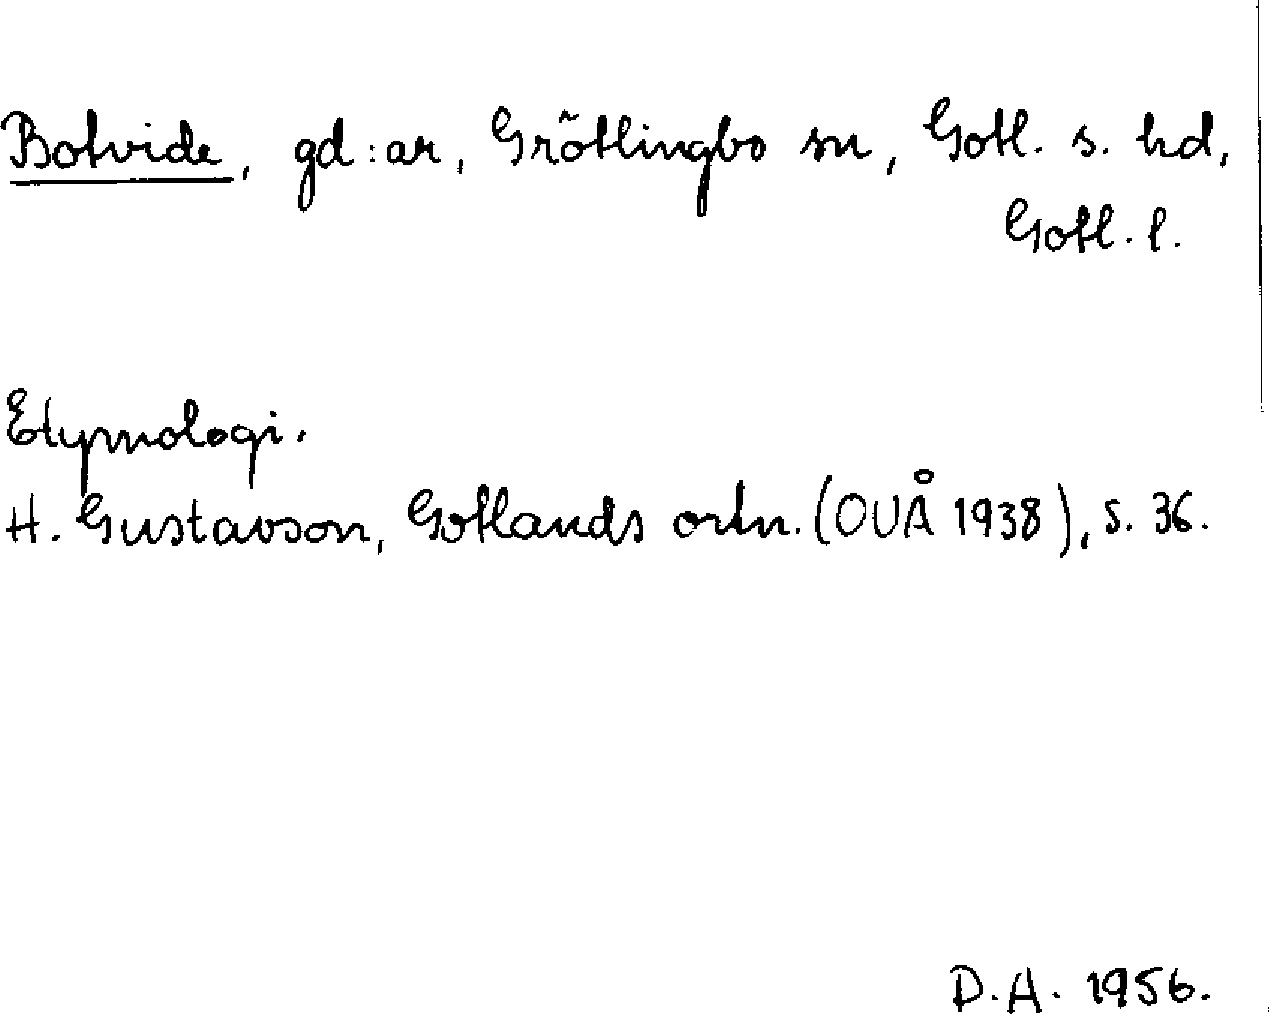 Botvide, gd:ar, Grötlingbo sn, Gotl. s. hd,
Gotl. l.
Etymologi.
H. Gustavson, Gotlands ortn. (OUÅ 1938), s. 36.
D.A. 1956.